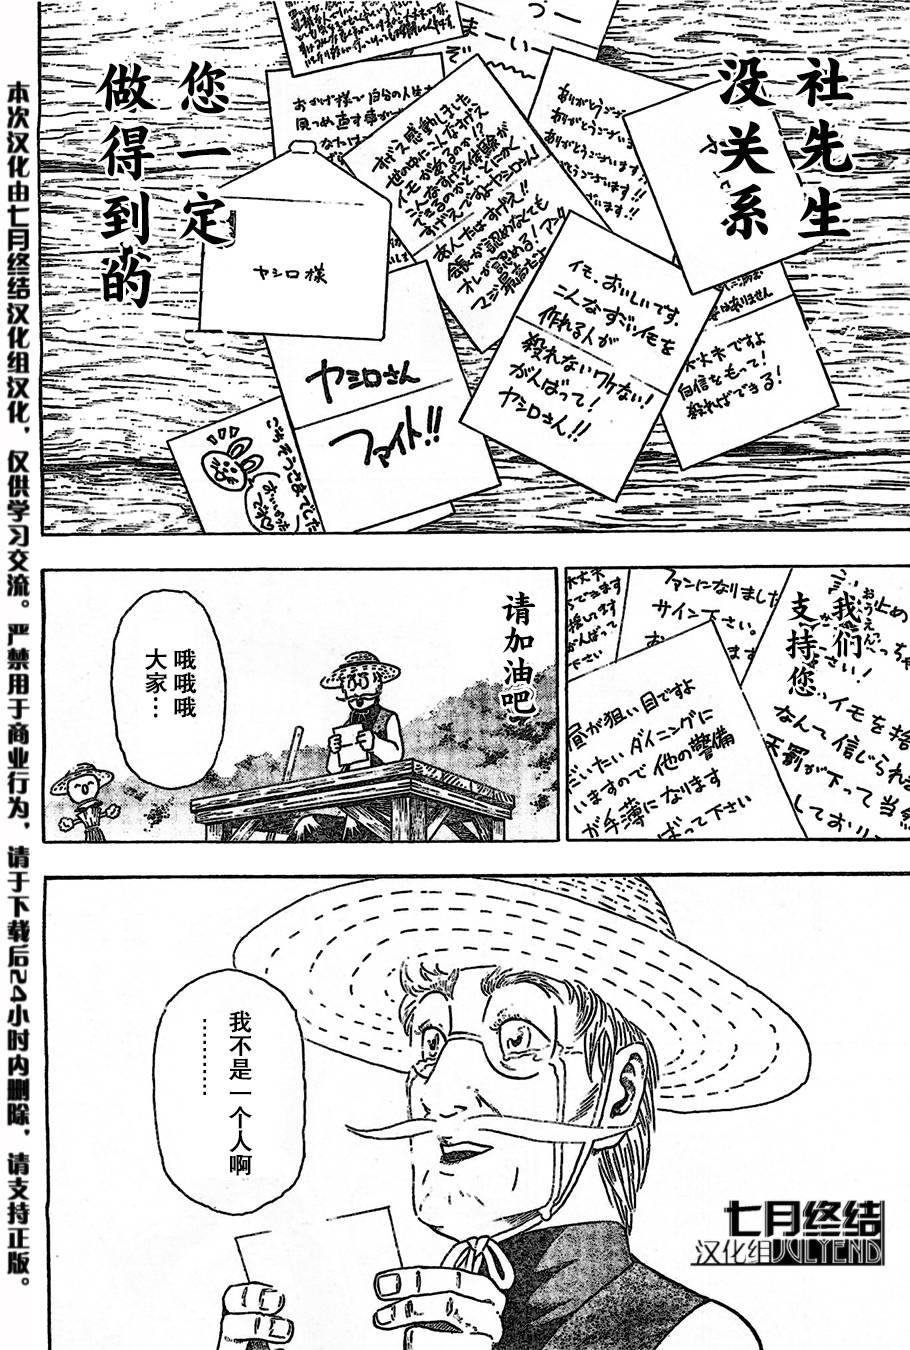 社先生
没关系
您一定
做得到的
ありがとうござい
ありがとうござい
すげえ感動しました
世の中にこんなすげえ
イモがあるのか!?
こんなすげえ体験が
できるのかと、とにかく
すげえですよヤシロさん!
あんたはすげえ!!
会長が認めなくても
オレが認める!
マジ最高だよ
おかげ様で自分の人生を
ヤシロ様
イモ、おいしいです。
こんなすごいイモを
作れる人が
殺れないワケない!
がんばって!
ヤシロさん!!
大丈夫ですよ
自信をもって!
殺ればできる!
ヤシロさん
ファイト!!
ごちそうさまでした
我们
支持您
ファンになりました
サイン下さい。
昼が狙い目ですよ
だいたいダイニングに
いますので他の警備
が手薄になります
ばって下さい
イモを捨
なんて信じられな
天罰が下って当然
しており
请加油吧
哦哦哦
大家…
我不是一个人啊
………
七月终结
汉化组JULYEND
本次汉化由七月终结汉化组汉化，仅供学习交流。严禁用于商业行为，请于下载后24小时内删除，请支持正版。